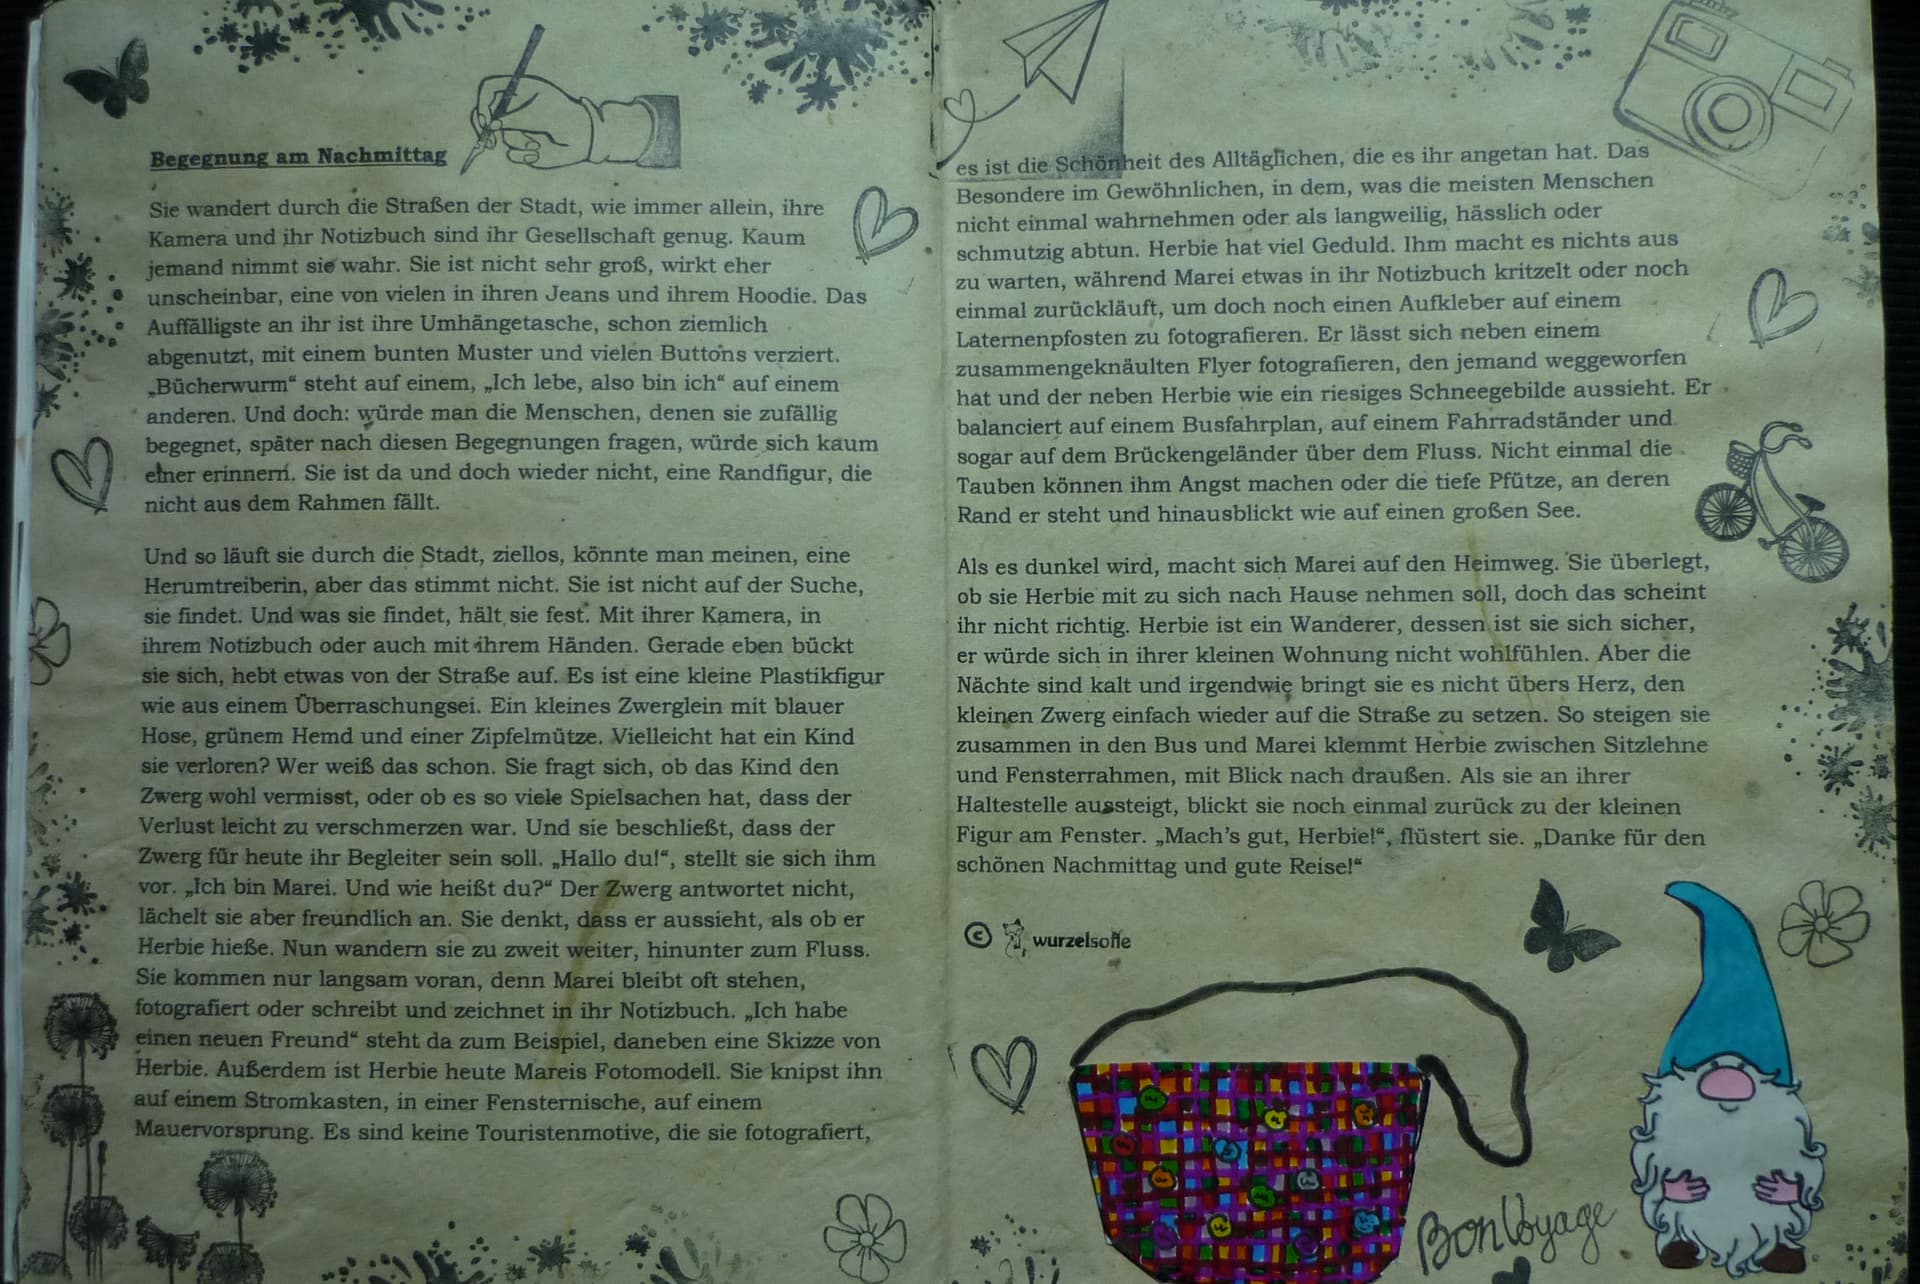 Begegnung am Nachmittag
Sie wandert durch die Straßen der Stadt, wie immer allein, ihre
Kamera und ihr Notizbuch sind ihr Gesellschaft genug. Kaum
jemand nimmt sie wahr. Sie ist nicht sehr groß, wirkt eher
unscheinbar, eine von vielen in ihren Jeans und ihrem Hoodie. Das
Auffälligste an ihr ist ihre Umhängetasche, schon ziemlich
abgenutzt, mit einem bunten Muster und vielen Buttons verziert.
„Bücherwurm“ steht auf einem, „Ich lebe, also bin ich“ auf einem
anderen. Und doch: würde man die Menschen, denen sie zufällig
begegnet, später nach diesen Begegnungen fragen, würde sich kaum
einer erinnern. Sie ist da und doch wieder nicht, eine Randfigur, die
nicht aus dem Rahmen fällt.
Und so läuft sie durch die Stadt, ziellos, könnte man meinen, eine
Herumtreiberin, aber das stimmt nicht. Sie ist nicht auf der Suche,
sie findet. Und was sie findet, hält sie fest. Mit ihrer Kamera, in
ihrem Notizbuch oder auch mit ihrem Händen. Gerade eben bückt
sie sich, hebt etwas von der Straße auf. Es ist eine kleine Plastikfigur
wie aus einem Überraschungsei. Ein kleines Zwerglein mit blauer
Hose, grünem Hemd und einer Zipfelmütze. Vielleicht hat ein Kind
sie verloren? Wer weiß das schon. Sie fragt sich, ob das Kind den
Zwerg wohl vermisst, oder ob es so viele Spielsachen hat, dass der
Verlust leicht zu verschmerzen war. Und sie beschließt, dass der
Zwerg für heute ihr Begleiter sein soll. „Hallo du!“, stellt sie sich ihm
vor. „Ich bin Marei. Und wie heißt du?“ Der Zwerg antwortet nicht,
lächelt sie aber freundlich an. Sie denkt, dass er aussieht, als ob er
Herbie hieße. Nun wandern sie zu zweit weiter, hinunter zum Fluss.
Sie kommen nur langsam voran, denn Marei bleibt oft stehen,
fotografiert oder schreibt und zeichnet in ihr Notizbuch. „Ich habe
einen neuen Freund“ steht da zum Beispiel, daneben eine Skizze von
Herbie. Außerdem ist Herbie heute Mareis Fotomodell. Sie knipst ihn
auf einem Stromkasten, in einer Fensternische, auf einem
Mauervorsprung. Es sind keine Touristenmotive, die sie fotografiert,
es ist die Schönheit des Alltäglichen, die es ihr angetan hat. Das
Besondere im Gewöhnlichen, in dem, was die meisten Menschen
nicht einmal wahrnehmen oder als langweilig, hässlich oder
schmutzig abtun. Herbie hat viel Geduld. Ihm macht es nichts aus
zu warten, während Marei etwas in ihr Notizbuch kritzelt oder noch
einmal zurückläuft, um doch noch einen Aufkleber auf einem
Laternenpfosten zu fotografieren. Er lässt sich neben einem
zusammengeknäulten Flyer fotografieren, den jemand weggeworfen
hat und der neben Herbie wie ein riesiges Schneegebilde aussieht. Er
balanciert auf einem Busfahrplan, auf einem Fahrradständer und
sogar auf dem Brückengeländer über dem Fluss. Nicht einmal die
Tauben können ihm Angst machen oder die tiefe Pfütze, an deren
Rand er steht und hinausblickt wie auf einen großen See.
Als es dunkel wird, macht sich Marei auf den Heimweg. Sie überlegt,
ob sie Herbie mit zu sich nach Hause nehmen soll, doch das scheint
ihr nicht richtig. Herbie ist ein Wanderer, dessen ist sie sich sicher,
er würde sich in ihrer kleinen Wohnung nicht wohlfühlen. Aber die
Nächte sind kalt und irgendwie bringt sie es nicht übers Herz, den
kleinen Zwerg einfach wieder auf die Straße zu setzen. So steigen sie
zusammen in den Bus und Marei klemmt Herbie zwischen Sitzlehne
und Fensterrahmen, mit Blick nach draußen. Als sie an ihrer
Haltestelle aussteigt, blickt sie noch einmal zurück zu der kleinen
Figur am Fenster. „Mach’s gut, Herbie!“, flüstert sie. „Danke für den
schönen Nachmittag und gute Reise!“
© wurzelsofie
Bon Voyage